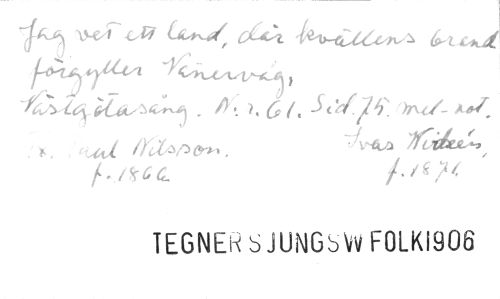 Jag vet ett land, där kvällens brand
förgyller Vänervåg,
Västgötasång. N:r. 61. Sid. 75. mel-not.
Paul Nilsson. Ivar Widéen,
f. 1866 f. 1871.
TEGNER SJUNGSWFOLK1906